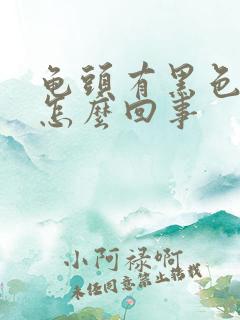 龟頭有黑色
怎麼回事
小阿祿啊
未经同意禁止搭载